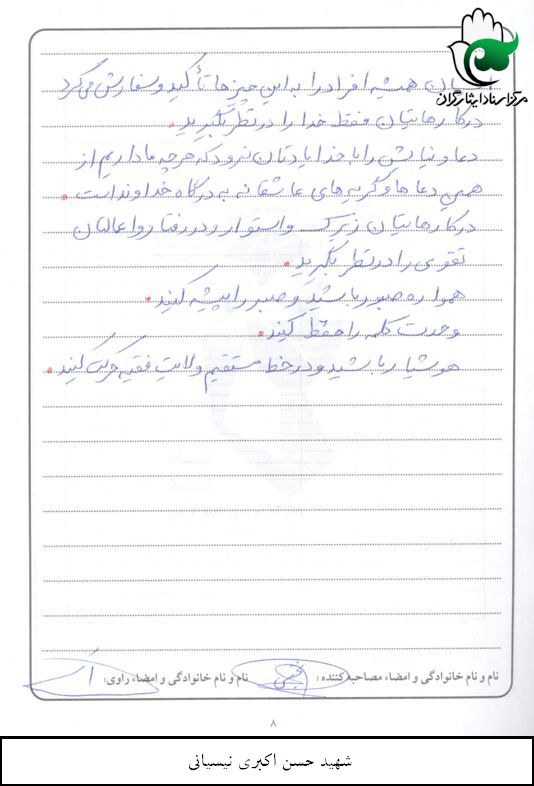 مرکز اسناد ایثارگران
ایشان همیشه افراد را به این چیزها تأکید و سفارش می‌کرد
در کارهایتان فقط خدا را در نظر بگیرید.
دعا و نیایش را با خدا یادتان نرود که هرچه ما داریم از
همین دعاها و گریه‌های عاشقانه به درگاه خداوند است.
در کارهایتان زیرک و استوار و در رفتار و اعمالتان
تقوی را در نظر بگیرید.
همواره صبور باشید و صبر را پیشه کنید.
وحدت کلمه را حفظ کنید.
هوشیار باشید و در خط مستقیم ولایت فقیه حرکت کنید.
نام و نام خانوادگی و امضاء مصاحبه کننده: نام و نام خانوادگی و امضاء راوی:
۸
شهید حسن اکبری نیسیانی